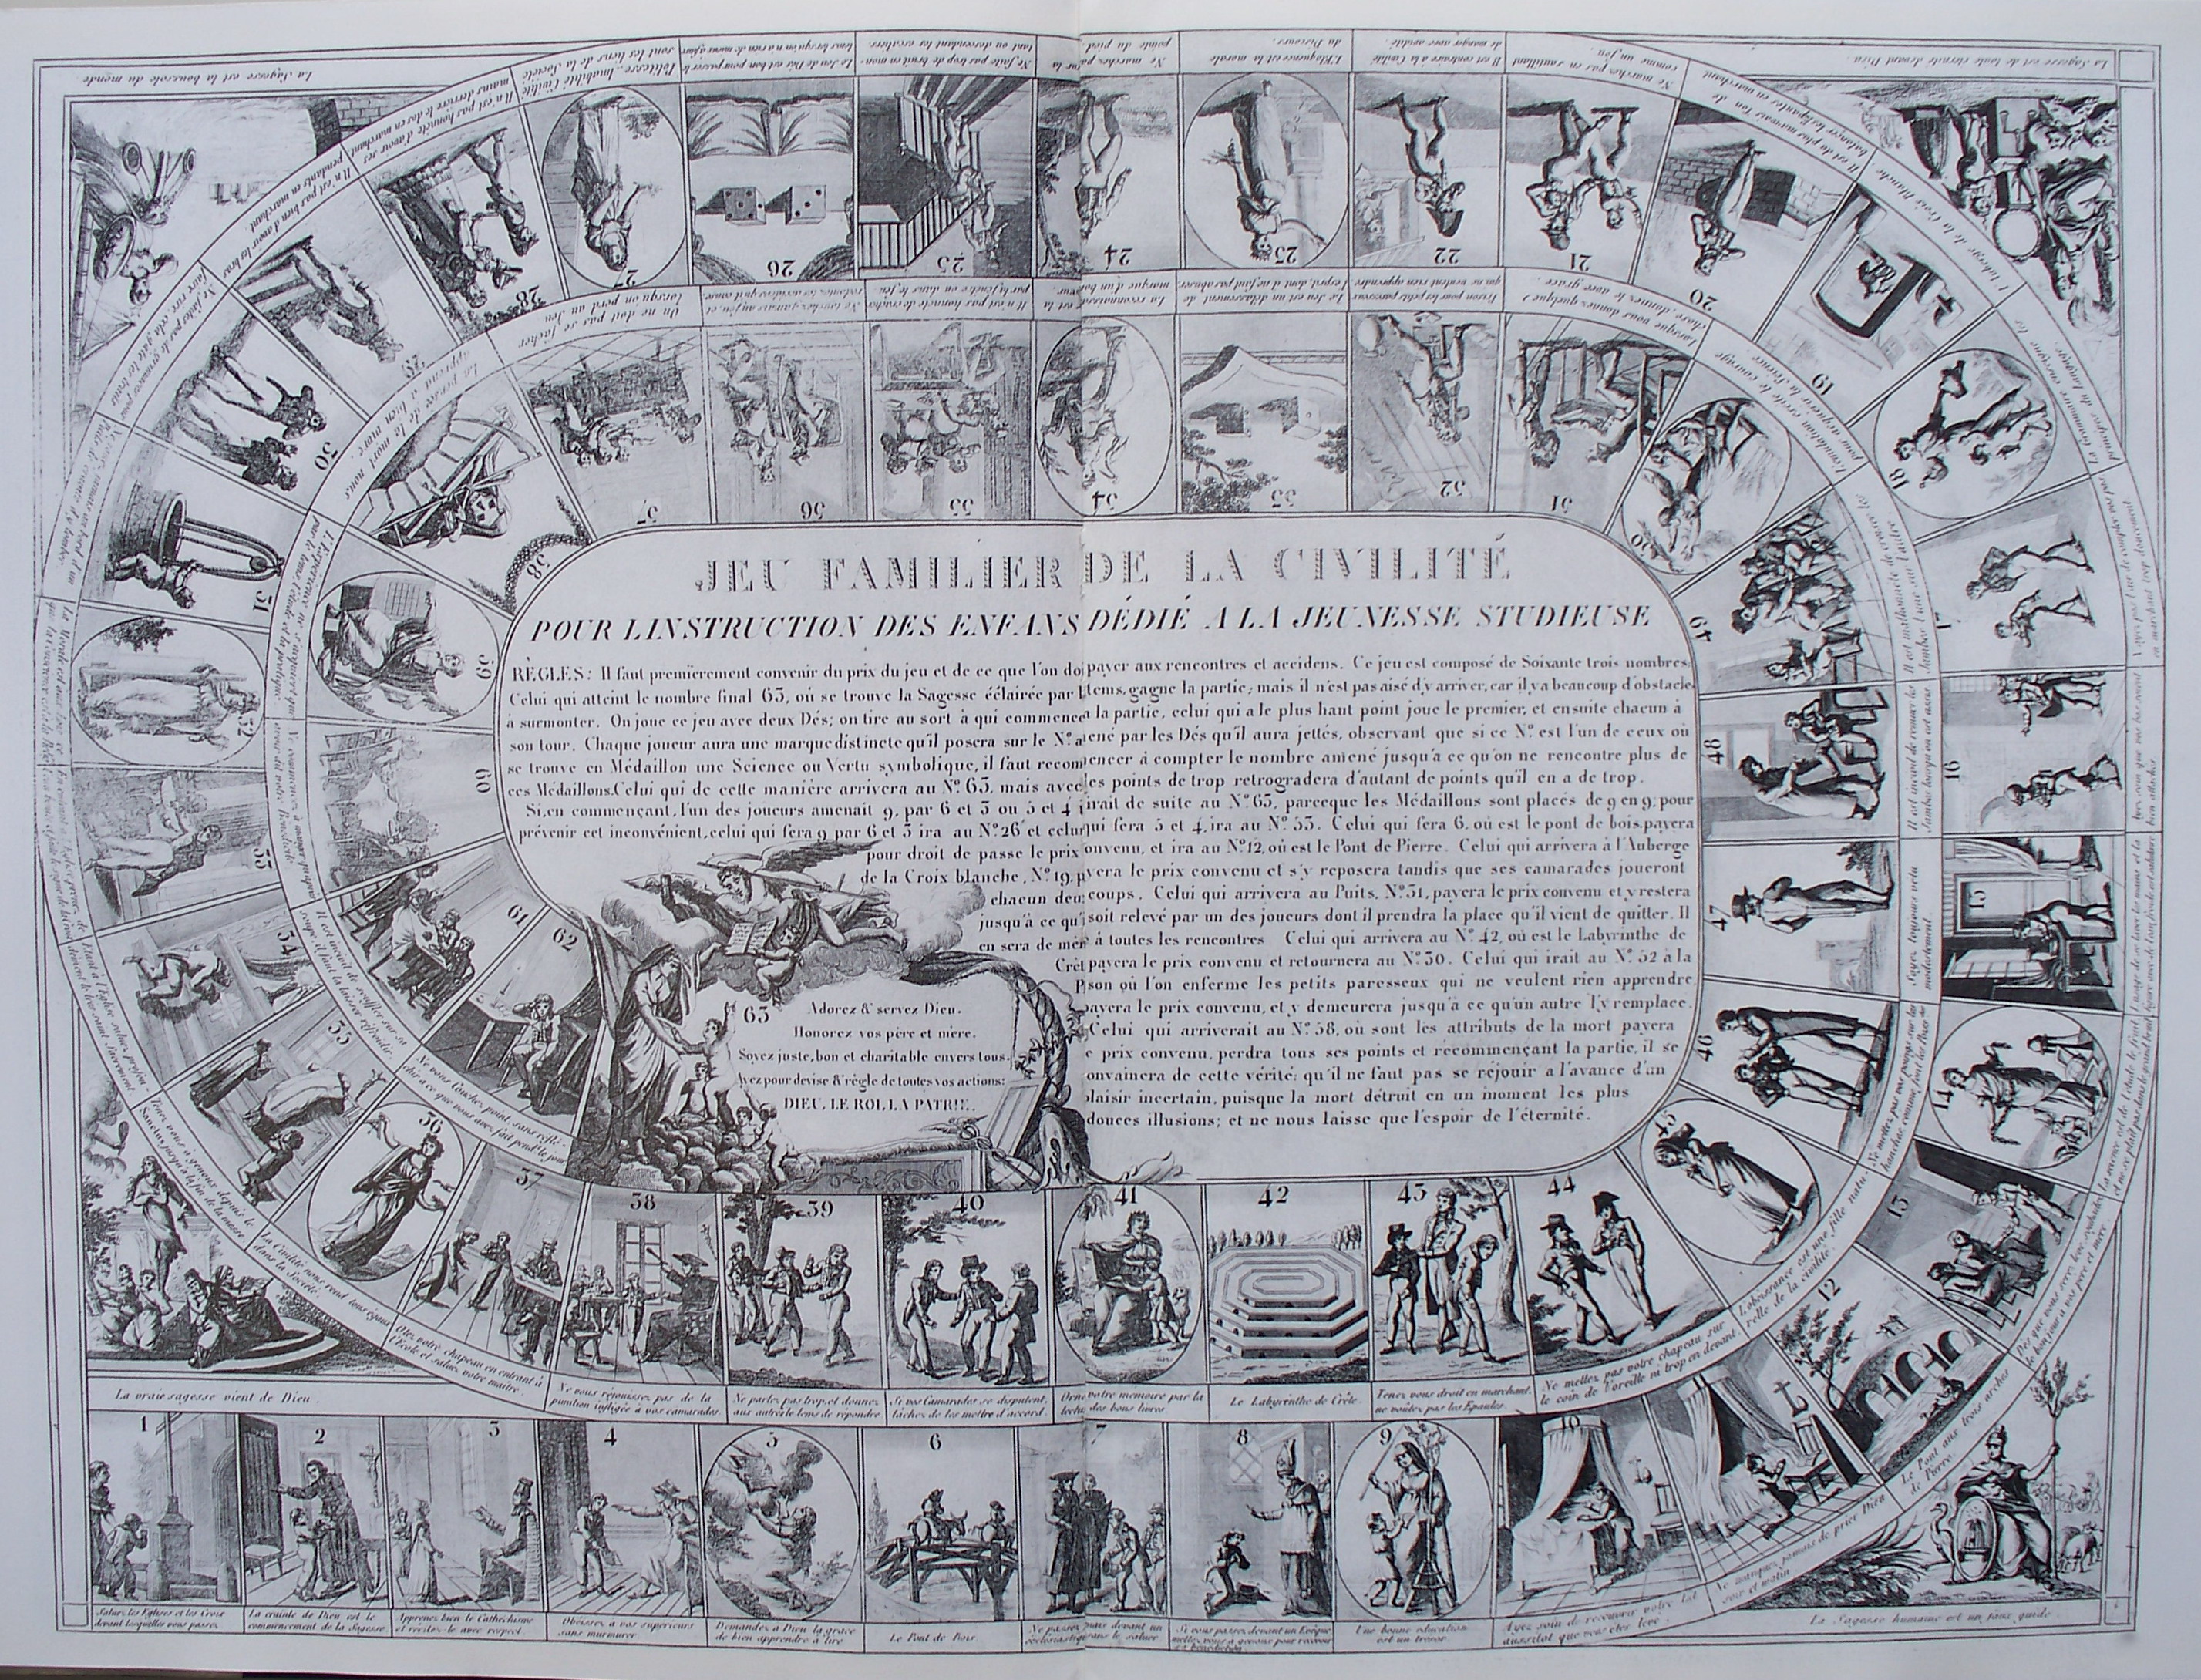 JEU FAMILIER DE LA CIVILITÉ
POUR LINSTRUCTION DES ENFANS DÉDIÉ A LA JEUNESSE STUDIEUSE
RÈGLES: Il faut premièrement convenir du prix du jeu et de ce que l'on do payer aux rencontres et accidens. Ce jeu est composé de Soixante trois nombres.
Celui qui atteint le nombre final 63, où se trouve la Sagesse éclairée par l tems, gagne la partie; mais il n'est pas aisé d'y arriver, car il y a beaucoup d'obstacle
à surmonter. On joue ce jeu avec deux Dés; on tire au sort à qui commence a la partie, celui qui a le plus haut point joue le premier, et ensuite chacun à
son tour. Chaque joueur aura une marque distincte qu'il posera sur le N.º a ené par les Dés qu'il aura jettés, observant que si ce N.º est l'un de ceux où
se trouve en Médaillon une Science ou Vertu symbolique, il faut recom encer à compter le nombre amené jusqu'à ce qu'on ne rencontre plus de
ces Médaillons. Celui qui de cette manière arrivera au N.º 63, mais avec les points de trop retrogradera d'autant de points qu'il en a de trop.
Si, en commençant, l'un des joueurs amenait 9, par 6 et 3 ou 5 et 4 irait de suite au N.º 63, parceque les Médaillons sont placés de 9 en 9; pour
prévenir cet inconvénient, celui qui fera 9 par 6 et 3 ira au N.º 26 et celui qui fera 5 et 4, ira au N.º 53. Celui qui fera 6, où est le pont de bois, payera
pour droit de passe le prix onvenu, et ira au N.º 12, où est le Pont de Pierre. Celui qui arrivera à l'Auberge
de la Croix blanche, N.º 19, p yera le prix convenu et s'y reposera tandis que ses camarades joueront
chacun deu coups. Celui qui arrivera au Puits, N.º 31, payera le prix convenu et y restera
jusqu'à ce qu'i soit relevé par un des joueurs dont il prendra la place qu'il vient de quitter. Il
en sera de mê à toutes les rencontres Celui qui arrivera au N.º 42, où est le Labyrinthe de
Crèt payera le prix convenu et retournera au N.º 30. Celui qui irait au N.º 52 à la
p son où l'on enferme les petits paresseux qui ne veulent rien apprendre
payera le prix convenu, et y demeurera jusqu'à ce qu'un autre l'y remplace.
Celui qui arriverait au N.º 58, où sont les attributs de la mort payera
e prix convenu, perdra tous ses points et recommençant la partie, il se
onvaincra de cette vérité: qu'il ne faut pas se réjouir a l'avance d'un
plaisir incertain, puisque la mort détruit en un moment les plus
douces illusions; et ne nous laisse que l'espoir de l'éternité.
63
Adorez & servez Dieu.
Honorez vos père et mère.
Soyez juste, bon et charitable envers tous.
Ayez pour devise & règle de toutes vos actions:
DIEU, LE ROI, LA PATRIE.
La vraie sagesse vient de Dieu.
La Sagesse humaine est un faux guide.
La Sagesse est de toute éternité devant Dieu.
La Sagesse est la boussole du monde
1
Saluez les Eglises et les Croix
devant lesquelles vous passez
2
La crainte de Dieu est le
commencement de la Sagesse
3
Apprenez bien le Cathéchisme
et récitez-le avec respect.
4
Obéissez à vos supérieurs
sans murmurer.
5
Demandez à Dieu la grace
de bien apprendre à lire
6
Le Pont de Bois
7
Ne passez jamais devant un
ecclésiastique sans le saluer
8
Si vous passez devant un Evêque
mettez vous à genoux pour recevoir
sa bénédiction
9
Une bonne éducation
est un trésor
10
Ayez soin de recouvrir votre lit
aussitot que vous etes levé
11
Ne manquez jamais de prier Dieu
soir et matin
12
Le Pont aux trois arches
de Pierre
13
Dès que vous serez levé, souhaitez
le bonjour à vos père et mère
14
15
16
17
18
19
L'Auberge de la Croix Blanche
20
Il est du plus mauvais Ton de
balancer les Epaules en marchant
21
Ne marchez pas en sautillant
comme un fou
22
Il est contraire à la Civilité
de manger avec avidité
23
L'Eloquence est la morale
du Discours
24
Ne marchez pas sur la
pointe du pied
25
Ne faites pas trop de bruit en mon-
tant ou descendant les escaliers
26
Le Jeu de Dés est bon pour passer le
tems lorsqu'on n'a rien de mieux à faire
27
Politesse, Amabilité, Civilité,
sont les liens de la Société
28
Il n'est pas honnête d'avoir ses
mains derrière le dos en marchant
29
Il n'est pas bien d'avoir les bras
pendants en marchant
30
Ne faites pas de grimaces pour
faire rire, cela gâte les traits
31
32
33
34
35
Tenez vous à genoux depuis le
Sanctus jusqu'à la fin de la messe
36
La Civilité nous rend tous égaux
dans la Société
37
Otez votre chapeau en entrant à
l'Ecole et saluez votre maitre.
38
Ne vous réjouissez pas de la
punition infligée à vos camarades
39
Ne parlez pas trop, et donnez
aux autres le tems de répondre
40
Si vos Camarades se disputent,
tâchez de les mettre d'accord.
41
Ornez votre mémoire par la
lecture des bons livres
42
Le Labyrinthe de Crète.
43
Tenez vous droit en marchant,
ne voutez pas les Epaules.
44
Ne mettez pas votre chapeau sur
le coin de l'oreille ni trop en devant.
45
L'obéissance est une fille natu-
relle de la civilité.
46
Ne mettez pas vos poings sur les
hanches
47
Soyez toujours vétu
modestement
48
49
50
L'émulation excite le courage
pour acquérir la Science
51
Lorsque vous donnez quelque
chose, donnez le avec grace
52
Prison pour les petits paresseux
qui ne veulent rien apprendre
53
Le Jeu est un délassement de
l'esprit, dont il ne faut pas abuser
54
La reconnaissance est la
marque d'un bon cœur.
55
Il n'est pas honnête de
56
57
On ne doit pas se fâcher
lorsqu'on perd au Jeu
58
La pensée de la mort nous
apprend à bien vivre
59
L'Expérience ne s'acquiert que
par le tems, l'étude et la pratique.
60
61
Il est incivil de souffler sur sa
soupe, il faut la laisser refroidir
62
Ne vous couchez point sans réflé-
chir à ce que vous avez fait pend.t le jour